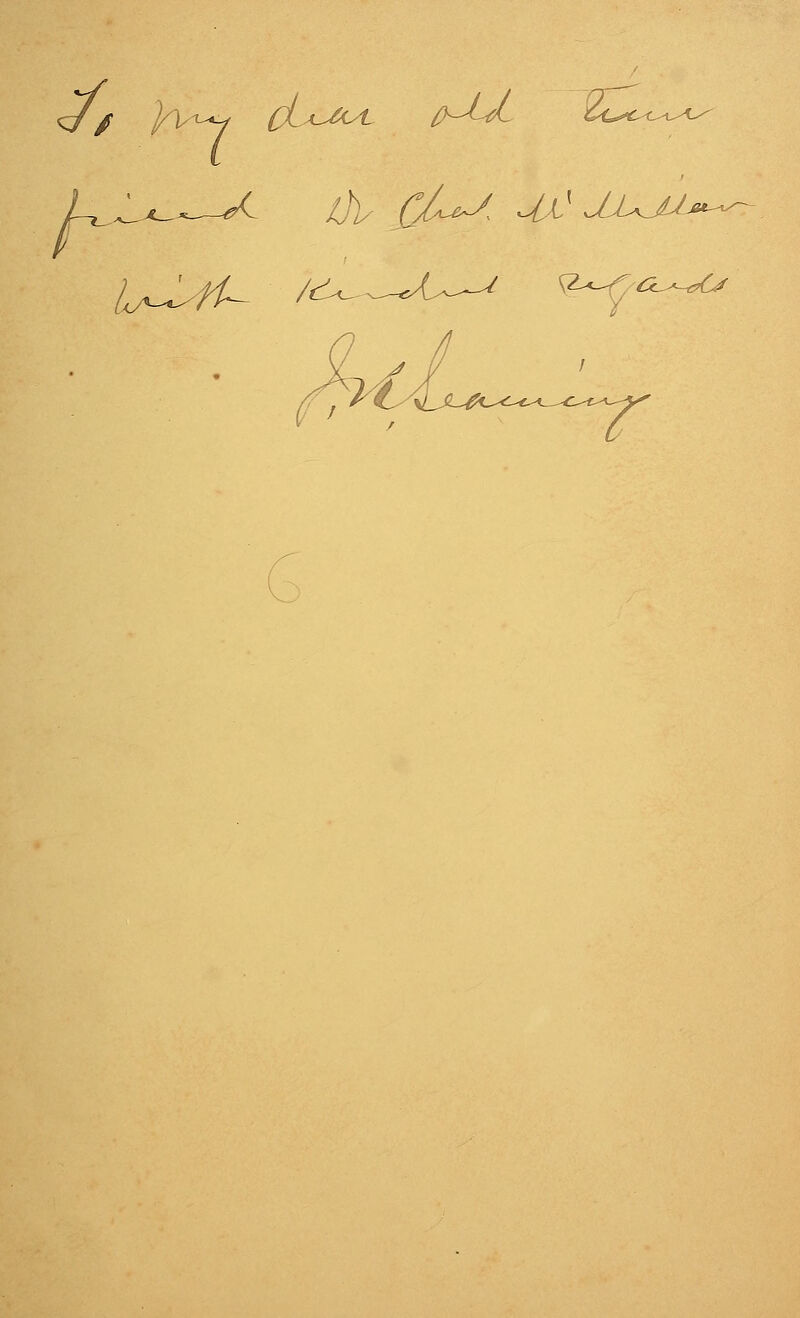 To my dear old time
friend Dr Chas. McMillan
with kindest regards
J.R. Leaming
6